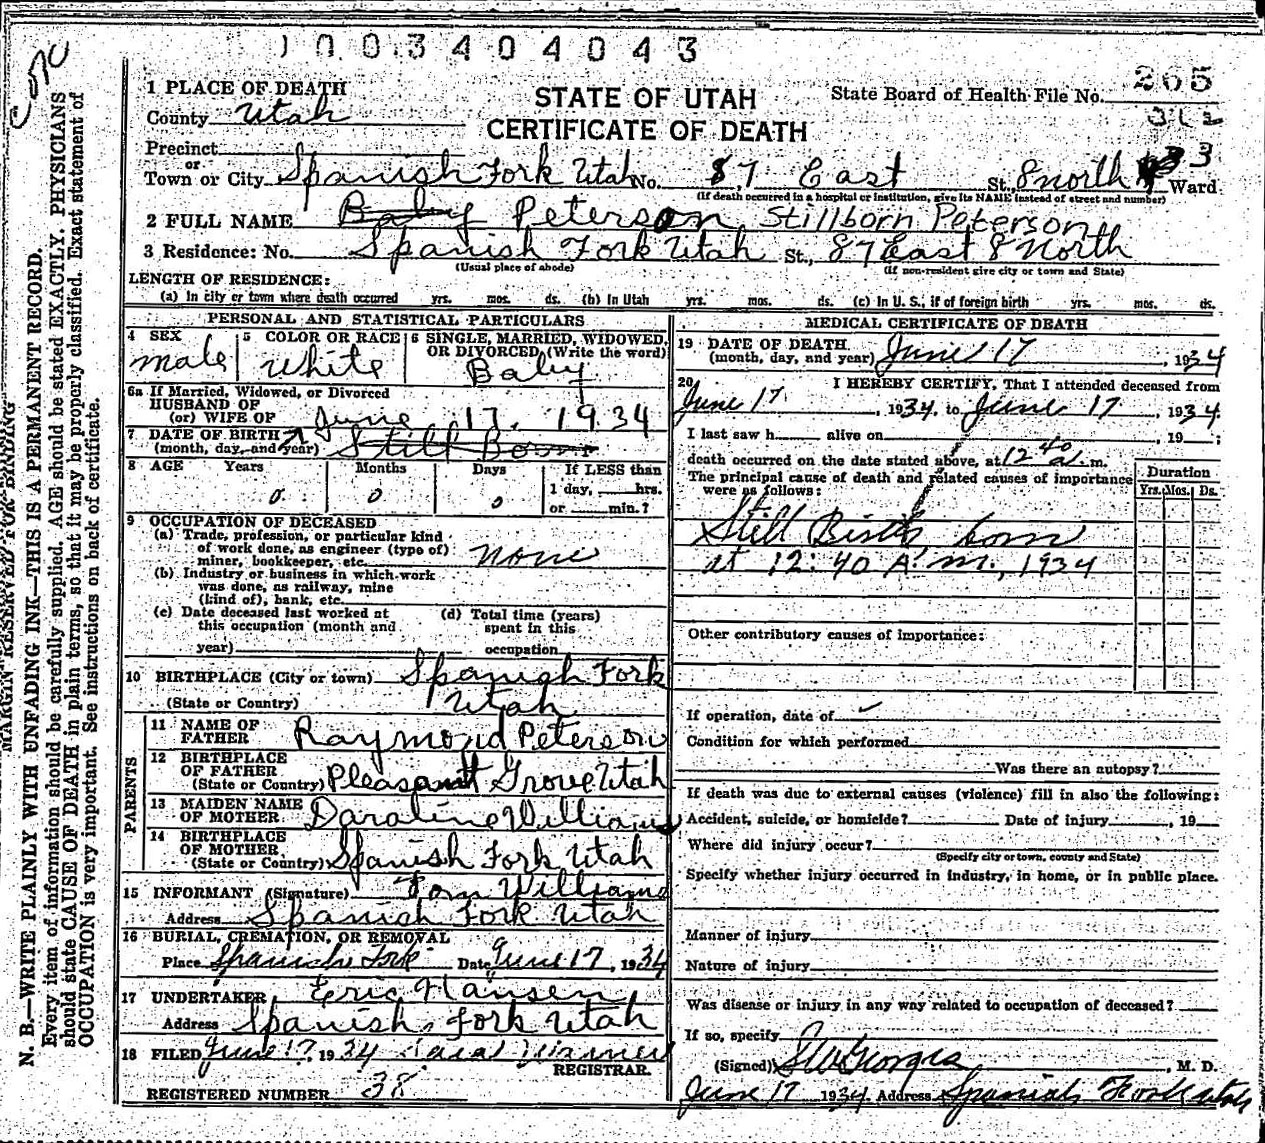 1003404043
1 PLACE OF DEATH
County Utah
STATE OF UTAH
CERTIFICATE OF DEATH
State Board of Health File No. 265
Precinct
or
Town or City Spanish Fork Utah No. 87 East St., 8 north Ward
(If death occurred in a hospital or institution, give its NAME instead of street and number)
2 FULL NAME Baby Peterson Stillborn Peterson
3 Residence: No. Spanish Fork Utah St., 87 East 8 North
(Usual place of abode) (If non-resident give city or town and State)
LENGTH OF RESIDENCE:
(a) In city or town where death occurred yrs. mos. ds. (b) In Utah yrs. mos. ds. (c) In U. S., if of foreign birth yrs. mos. ds.
PERSONAL AND STATISTICAL PARTICULARS
4 SEX
male
5 COLOR OR RACE
white
6 SINGLE, MARRIED, WIDOWED,
OR DIVORCED (Write the word)
Baby
6a If Married, Widowed, or Divorced
HUSBAND OF
(or) WIFE OF June 17, 1934
7 DATE OF BIRTH
(month, day, and year) Still Born
8 AGE Years Months Days If LESS than
0 0 0 1 day, hrs.
or min.?
9 OCCUPATION OF DECEASED
(a) Trade, profession, or particular kind
of work done, as engineer (type of)
miner, bookkeeper, etc. none
(b) Industry or business in which work
was done, as railway, mine
(kind of), bank, etc.
(c) Date deceased last worked at
this occupation (month and
year)
(d) Total time (years)
spent in this
occupation
10 BIRTHPLACE (City or town) Spanish Fork
(State or Country) Utah
PARENTS
11 NAME OF
FATHER Raymond Peterson
12 BIRTHPLACE
OF FATHER
(State or Country) Pleasant Grove Utah
13 MAIDEN NAME
OF MOTHER Daraline Williams
14 BIRTHPLACE
OF MOTHER
(State or Country) Spanish Fork Utah
15 INFORMANT (Signature) Tom Williams
Address Spanish Fork Utah
16 BURIAL, CREMATION, OR REMOVAL
Place Spanish Fork Date June 17, 1934
17 UNDERTAKER Eric Hansen
Address Spanish Fork Utah
18 FILED June 17, 1934
REGISTRAR.
REGISTERED NUMBER 38
MEDICAL CERTIFICATE OF DEATH
19 DATE OF DEATH
(month, day, and year) June 17, 1934
20 I HEREBY CERTIFY, That I attended deceased from
June 17, 1934, to June 17, 1934
I last saw h alive on , 19 ;
death occurred on the date stated above, at 12 40 a. m.
The principal cause of death and related causes of importance
were as follows:
Duration
Yrs. Mos. Ds.
Still Birth, born
at 12:40 A.m., 1934
Other contributory causes of importance:
If operation, date of
Condition for which performed
Was there an autopsy?
If death was due to external causes (violence) fill in also the following:
Accident, suicide, or homicide? Date of injury , 19
Where did injury occur?
(Specify city or town, county and State)
Specify whether injury occurred in industry, in home, or in public place.
Manner of injury
Nature of injury
Was disease or injury in any way related to occupation of deceased?
If so, specify
(Signed) , M. D.
June 17 1934 Address Spanish Fork Utah
MARGIN RESERVED FOR BINDING
N. B.—WRITE PLAINLY WITH UNFADING INK—THIS IS A PERMANENT RECORD.
Every item of information should be carefully supplied. AGE should be stated EXACTLY. PHYSICIANS
should state CAUSE OF DEATH in plain terms, so that it may be properly classified. Exact statement of
OCCUPATION is very important. See instructions on back of certificate.